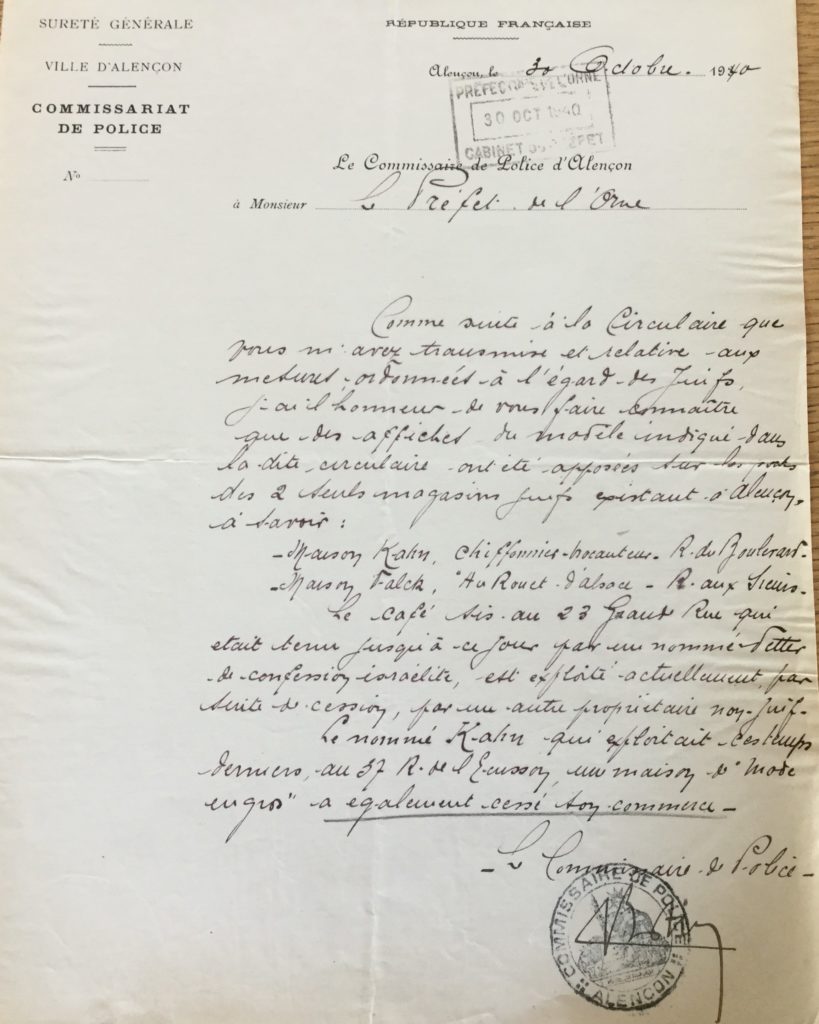 SURETÉ GÉNÉRALE
VILLE D'ALENÇON
COMMISSARIAT
DE POLICE
N°
RÉPUBLIQUE FRANÇAISE
Alençon, le 30 Octobre 1940
PRÉFECTURE DE L'ORNE
30 OCT 1940
CABINET DU PRÉFET
Le Commissaire de Police d'Alençon
à Monsieur Le Préfet de l'Orne
Comme suite à la Circulaire que
vous m'avez transmise et relative aux
mesures ordonnées à l'égard des Juifs,
j'ai l'honneur de vous faire connaître
que des affiches du modèle indiqué dans
la dite circulaire ont été apposées sur les
des 2 seuls magasins juifs existant à Alençon,
à savoir :
- Maison Kahn, chiffonnier-brocanteur - R. du Boulevard -
- Maison Falck, "Au Rouet d'alsace - R. aux Sieurs -
Le café sis au 23 Grand Rue qui
était tenu jusqu'à ce jour par un nommé
de confession israélite, est exploité actuellement, par
suite de cession, par un autre propriétaire non-juif -
Le nommé Kahn qui exploitait ces temps
derniers, au 37 R. de l'Ecusson, une maison de "Mode
en gros" a également cessé son commerce -
- Le Commissaire de Police -
COMMISSAIRE DE POLICE
ALENÇON